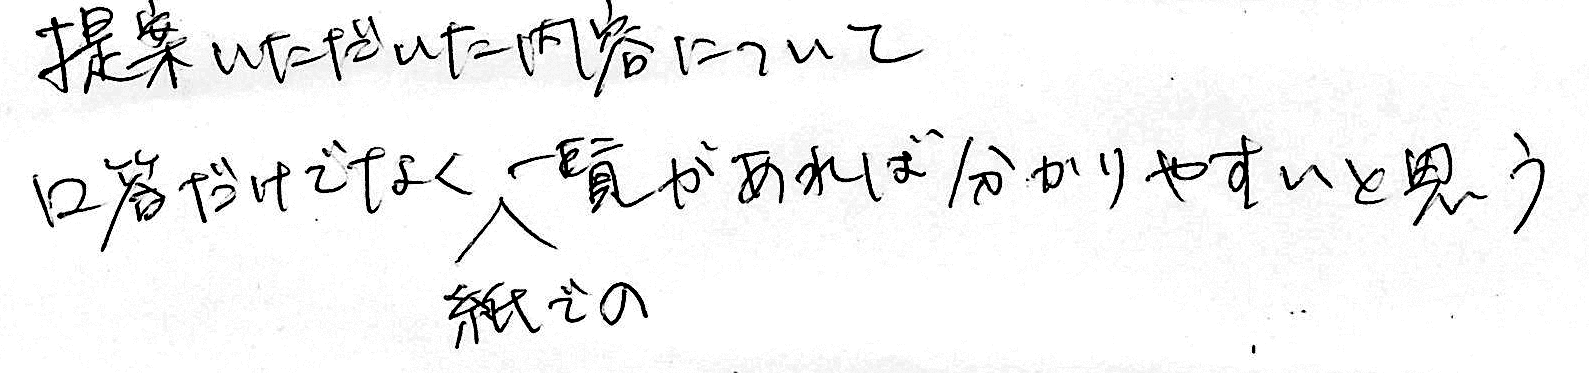 提案いただいた内容について
口答だけでなく一覧があれば分かりやすいと思う
紙での